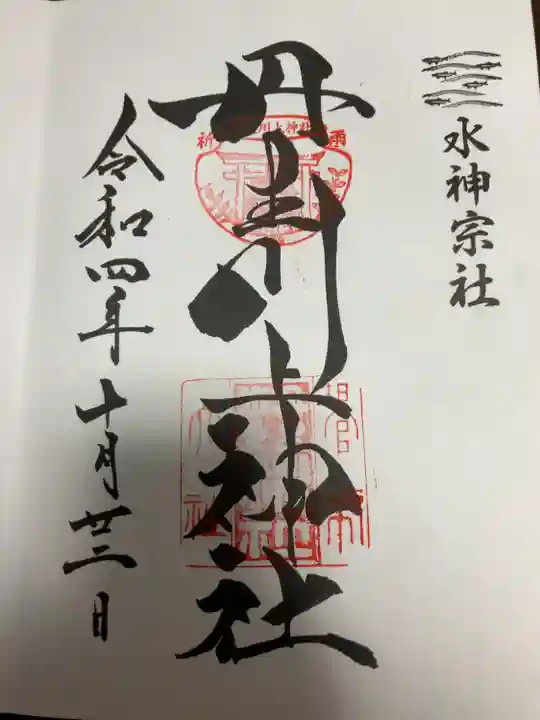 水神宗社
丹生川上神社
令和四年十月廿三日